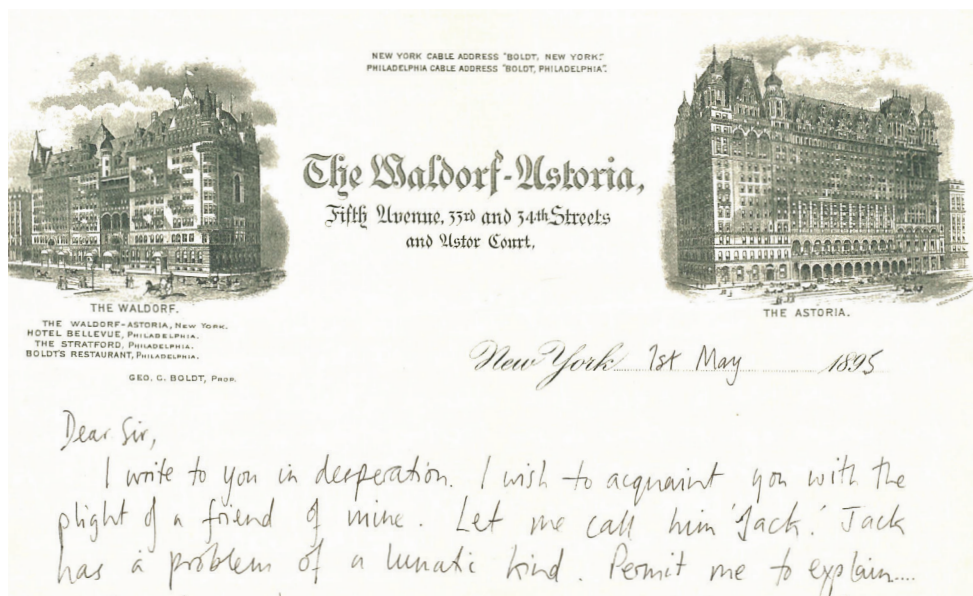 NEW YORK CABLE ADDRESS "BOLDT, NEW YORK".
PHILADELPHIA CABLE ADDRESS "BOLDT, PHILADELPHIA".
The Waldorf-Astoria,
Fifth Avenue, 33rd and 34th Streets
and Astor Court.
THE WALDORF.
THE ASTORIA.
THE WALDORF-ASTORIA, NEW YORK.
HOTEL BELLEVUE, PHILADELPHIA.
THE STRATFORD, PHILADELPHIA.
BOLDT'S RESTAURANT, PHILADELPHIA.
GEO. C. BOLDT, PROP.
New York 1st May 1895
Dear Sir,
I write to you in desperation. I wish to acquaint you with the
plight of a friend of mine. Let me call him 'Jack.' Jack
has a problem of a lunatic kind. Permit me to explain....